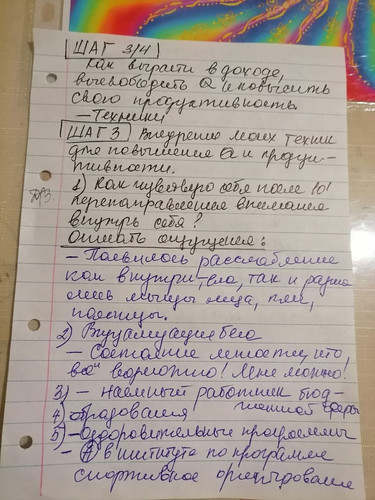 ШАГ 3/4
Как вырасти в доходе,
высвободить Q и повысить
свою продуктивность.
– Техники
ШАГ 3 Внедрение моих техник
для повышения Q и продук-
тивности.
Д/З
1) Как чувствую себя после 10'
перенаправления внимания
внутрь себя?
Описать ощущения:
– Появилось расслабление
как внутри тела, так и разжа-
лись мышцы лица, плеч,
поясницы.
2) Визуализация бега
– Состояние легкости, что
"всё" возможно! Мне можно!
3) – наёмный работник бюд-
жетной сферы
4) – образования
5) – оздоровительные программы
– в института по программе
спортивное ориентирование